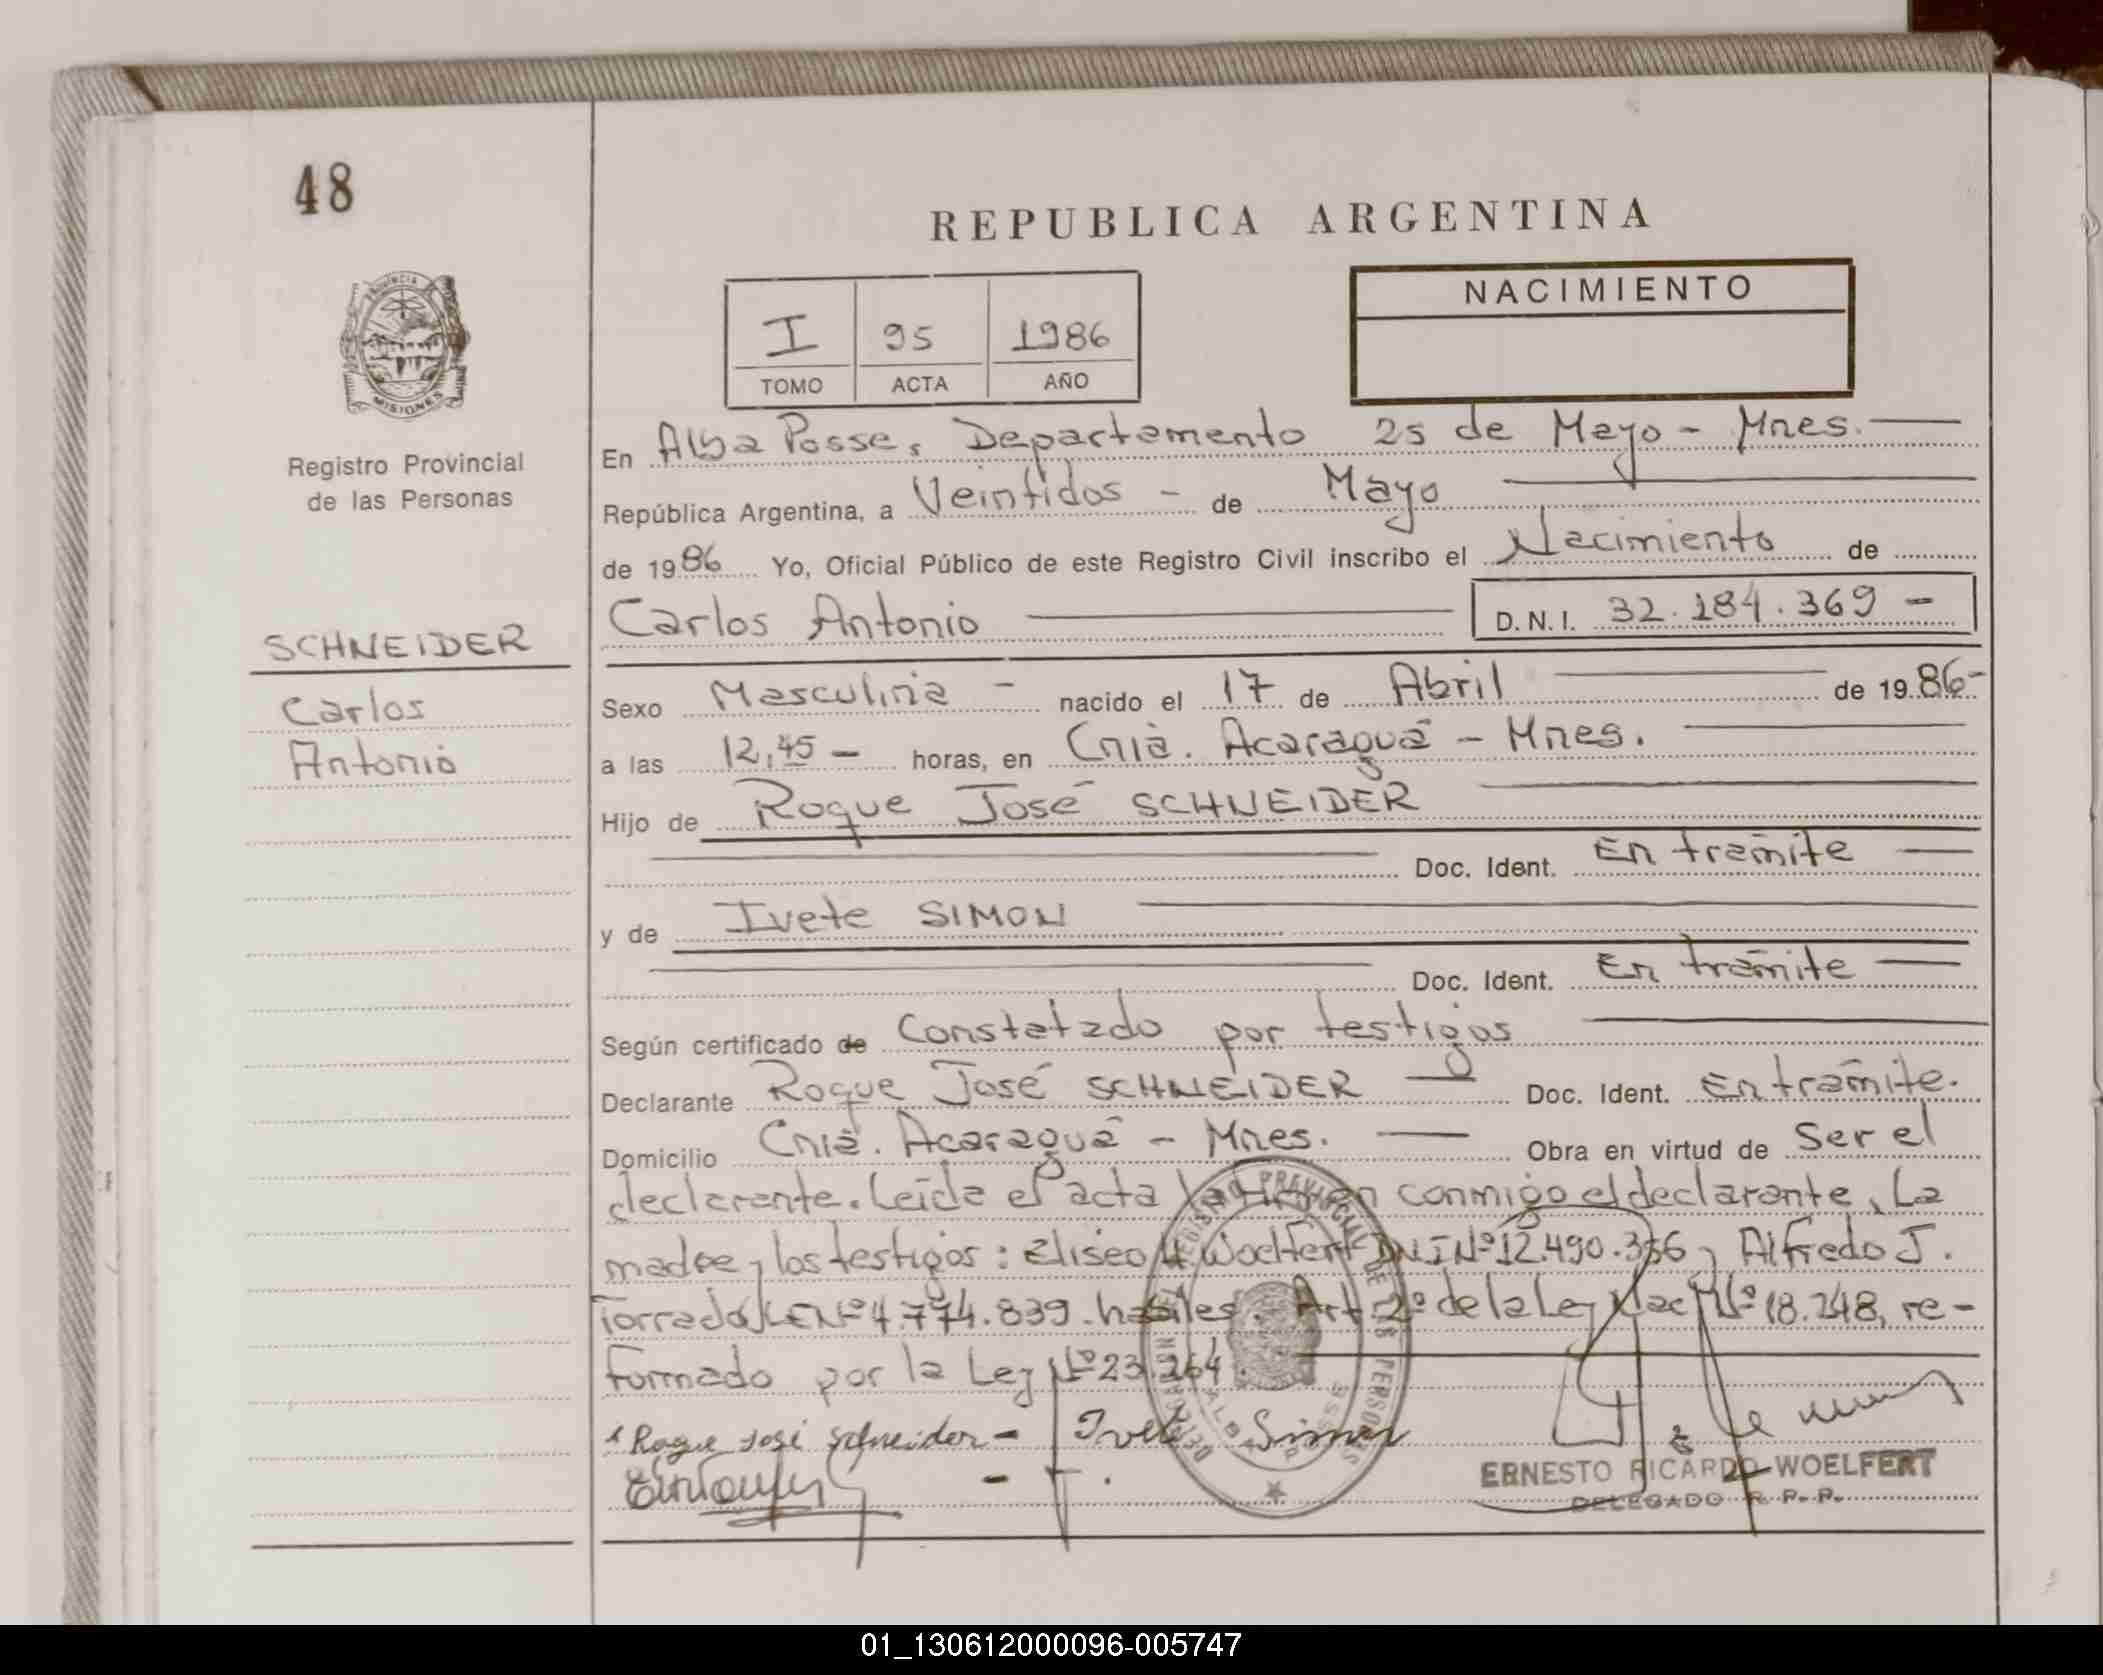 48
REPUBLICA ARGENTINA
Provincia
MISIONES
Registro Provincial
de las Personas
I 95 1986
TOMO ACTA AÑO
NACIMIENTO
En Alba Posse, Departamento 25 de Mayo - Mnes.
República Argentina, a Veintidos - de Mayo
de 1986 Yo, Oficial Público de este Registro Civil inscribo el Nacimiento de
Carlos Antonio D.N.I. 32.184.369 -
SCHNEIDER
Carlos
Antonio
Sexo Masculino - nacido el 17 de Abril de 1986-
a las 12,45 - horas, en Cnia. Acaraguá - Mnes.
Hijo de Roque José SCHNEIDER
Doc. Ident. En trámite
y de Ivete SIMON
Doc. Ident. En trámite
Según certificado de Constatado por testigos
Declarante Roque José SCHNEIDER Doc. Ident. En trámite.
Domicilio Cnia. Acaraguá - Mnes. Obra en virtud de Ser el
declarante. Leída el acta la firman conmigo el declarante, La
madre y los testigos: Eliseo H. Woelfert DNI Nº 12.490.356 y Alfredo J.
Torrada LE Nº 4.774.839. habiles. Art. 2º de la Ley Nac. Nº 18.248, re-
formado por la Ley Nº 23.264.
Roque José Schneider - Ivete Simon
REGISTRO PROVINCIAL DE LAS PERSONAS
DELEGACION
ALBA POSSE
ERNESTO RICARDO WOELFERT
DELEGADO R. P. P.
01_130612000096-005747